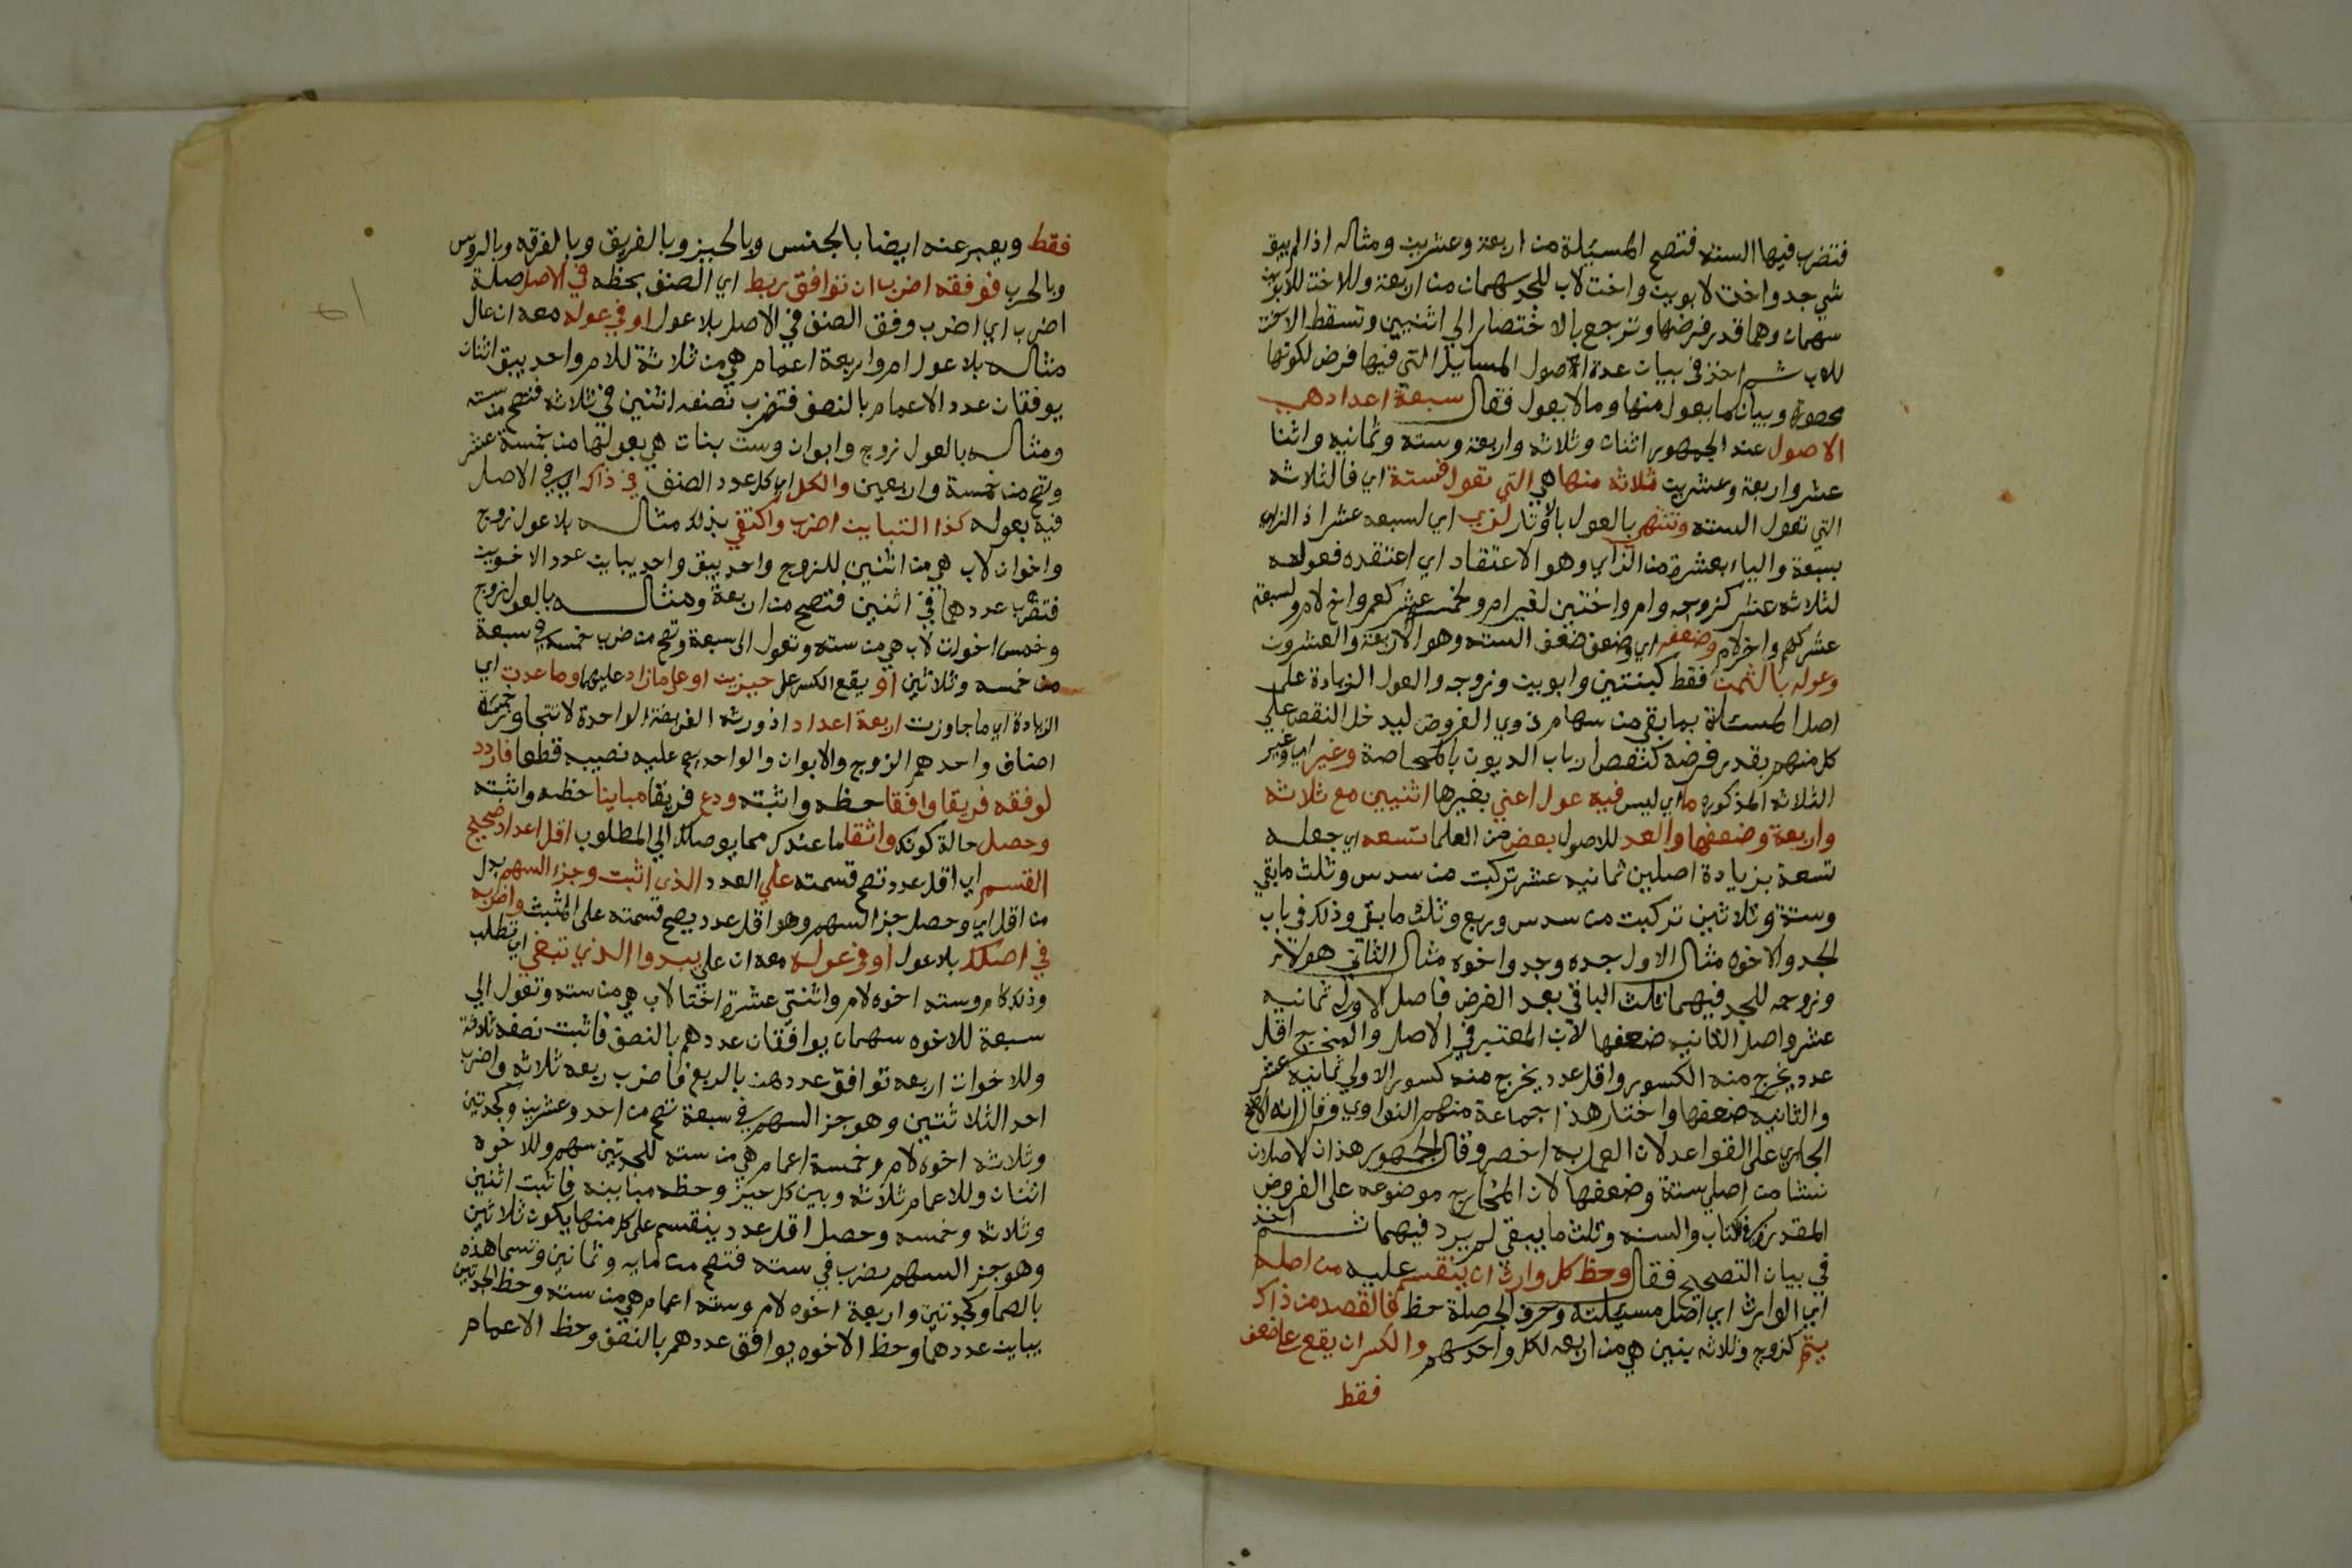 فتضرب فيها الستة فتصح المسئلة من اربعة وعشرين ومثاله اذا لم يبق
شي جد واخت لابوين واخت لاب للجد سهمان من اربعة وللاخت للابوين
سهمان وهما قدر فرضها وترجع بالاختصار الي اثنين وتسقط الاخت
للاب ثم اخذ في بيان عدة اصول المسايل التي فيها فرض لكونها
محصورة وبيان ما يعول منها وما لا يعول فقال سبعة اعداد هي
الاصول عند الجمهور اثنان وثلاثه واربعة وسته وثمانيه واثنا
عشر واربعة وعشرين ثلاثه منها هي التي تعول فستة اي فالثلاثه
التي تعول السته وتنتهي بالعول بالاوتار لزي اي لسبعه عشر اذ الزاي
بسبعة والياء بعشرة من الزاي وهو الاعتقاد اي اعتقده فعولها
لثلاثه عشر كزوجه وام واختين لغير ام ولخمسة عشر كهم واخ لام ولسبعة
عشر كهم واخر لام وضعفه اي وضعف ضعف السته وهو الاربعة والعشرون
وعوله بالثمن فقط كبنتين وابوين وزوجه والعول الزيادة على
اصل المسئلة بما بقي من سهام ذوي الفروض ليدخل النقص علي
كل منهم بقدر فرضه كنقص ارباب الديون بالمحاصة وغير اي وغير
الثلاثه المذكوره ما اي ليس فيه عول اعني بغيرها اثنين مع ثلاثه
واربعة وضعفها والعد للاصول بعض من العلما تسعه اي جعله
تسعة بزيادة اصلين ثمانيه عشر تركبت من سدس وثلث ما بقي
وستة وثلاثين تركبت من سدس وربع وثلث ما بقي وذلك في باب
الجد والاخوه مثال الاول جده وجد واخوه مثال الثاني هولاء
وزوجه للجد فيهما ثلث الباقي بعد الفرض فاصل الاولي ثمانيه
عشر واصل الثانيه ضعفها لان المعتبر في الاصل والمخرج اقل
عدد يخرج منه الكسور واقل عدد يخرج منه كسور الاولي ثمانيه عشر
والثانيه ضعفها واختار هذا جماعة منهم النواوي وقال انه الاصح
الجاري على القواعد لان العمل به اخصر وقال الجمهور هذان لاصلان
نشا من اصلي ستة وضعفها لان المخارج موضوعه على الفروض
المقدرة في الكتاب والسنه وثلث ما يبقي لم يرد فيهما ثم اخذ
في بيان التصحيح فقال وحظ كل وارث ان ينقسم عليه من اصله
اي الوارث اي اصل مسئلته وحرف الجر صلة حظ فالقصد من ذاك
يتم كزوج وثلاثه بنين هي من اربعه لكل واحد سهم والكسر ان يقع علي صنف
فقط
فقط ويعبر عنه ايضا بالجنس وبالحيز وبالفريق وبالفرقه وبالروس
وبالحزب فوفقه اضرب ان توافق بربط اي الصنف بحظه في الاصل صلة
اضرب اي اضرب وفق الصنف في الاصل بلا عول او في عوله معه ان عال
مثاله بلا عول ام واربعة اعمام هي من ثلاثة للام واحد يبق اثنان
يوفقان عدد الاعمام بالنصف فتضرب نصفه اثنين في ثلاثه فتصح من سته
ومثاله بالعول زوج وابوان وست بنات هي بعولها من خمسة عشر
وتصح من خمسة واربعين والكل اي كل عدد الصنف في ذاك اي في الاصل
فيه بعوله كذا التباين اضرب واكتفي بذلك مثاله بلا عول زوج
واخوان لاب هي من اثنين للزوج واحد يبق واحد يباين عدد الاخوين
فتضرب عددهما في اثنين فتصح من اربعة ومثاله بالعول زوج
وخمس اخوات لاب هي من سته وتعول الي سبعة وتصح من ضرب خمسه في سبعة
من خمسه وثلاثين او يقع الكسر علي حيزين او علي ما زاد عليهما وما عدت اي
الزيادة اي ما جاوزت اربعة اعداد اذ ورثة الفريضة الواحدة لا تتجاوز خمسة
اصناف واحدهم الزوج والابوان والواحد يصح عليه نصيبه قطعا فاردد
لوفقه فريقا وافقا حظه واثبته ودع فريقا مباينا حظه واثبته
وحصل حالة كونك واثقا ما عندك مما يوصلك الي المطلوب اقل اعداد صحيح
القسم اي اقل عدد تصح قسمته علي العدد الذي اثبت وجزء السهم بدل
من اقل اي وحصل جز السهم وهو اقل عدد يصح قسمته على المثبت واضربه
في اصلك بلا عول او في عوله معه ان علي يبدوا الذي تبغي اي تطلب
وذلك كام وسته اخوه لام واثنتي عشرة اختا لاب هي من سته وتعول الي
سبعة للاخوه سهمان يوافقان عددهم بالنصف فاثبت نصفه ثلاثة
وللاخوات اربعه توافق عددهن بالربع فاضرب ربعه ثلاثه واضرب
احد الثلاثتين وهو جز السهم في سبعة تصح من احد وعشرين وكجدتين
وثلاثه اخوه لام وخمسة اعمام هي من سته للجدتين سهم وللاخوه
اثنان وللاعمام ثلاثه وبين كل حيز وحظه مباينه فاثبت اثنين
وثلاثه وخمسه وحصل اقل عدد ينقسم على كل منها يكون ثلاثين
وهو جز السهم يضرب في سته فتصح من مايه وثمانين وتسما هذه
بالصما وكجدتين واربعة اخوه لام وسته اعمام هي من سته وحظ الجدتين
يباين عددهما وحظ الاخوه يوافق عددهم بالنصف وحظ الاعمام